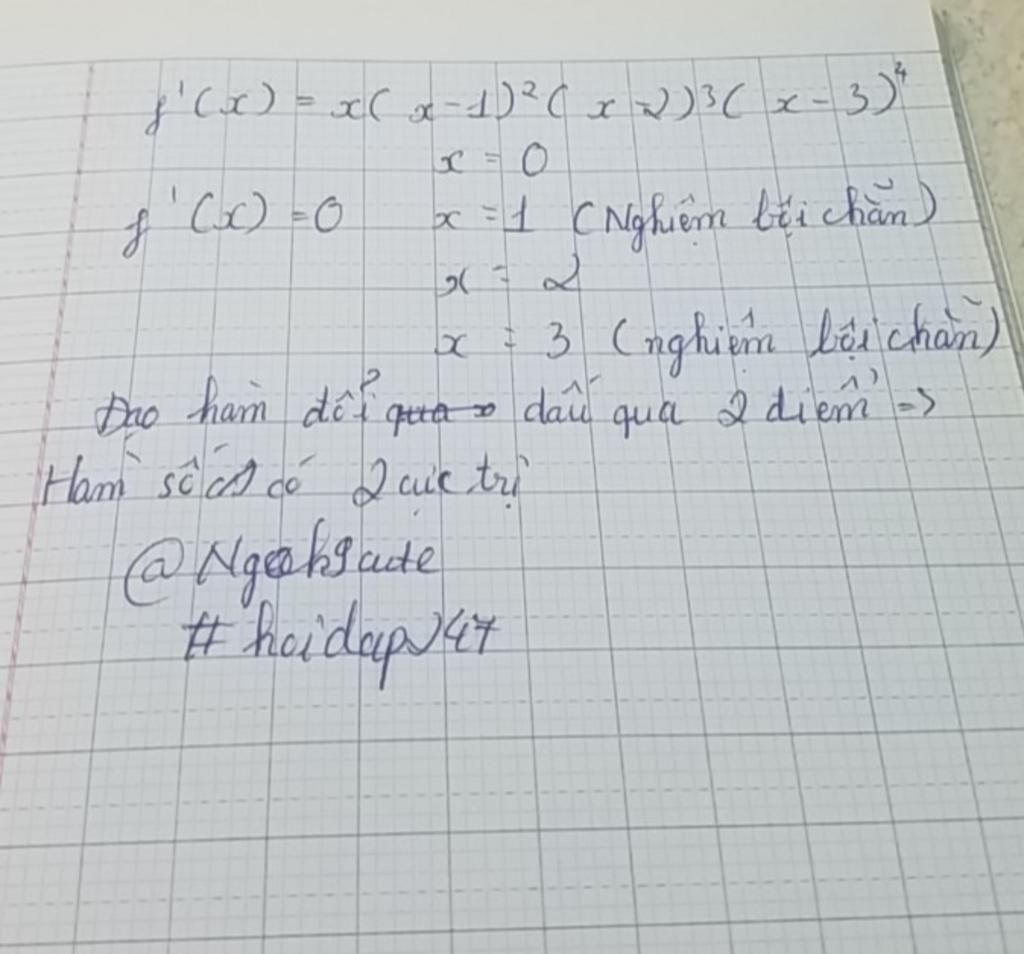 f'(x) = x(x-1)²(x-2)³(x-3)⁴
x = 0
f'(x) = 0 x = 1 (Nghiệm bội chẵn)
x = 2
x = 3 (nghiệm bội chẵn)
Đạo hàm đổi dấu qua 2 điểm =>
Hàm số có 2 cực trị
#hoidap247